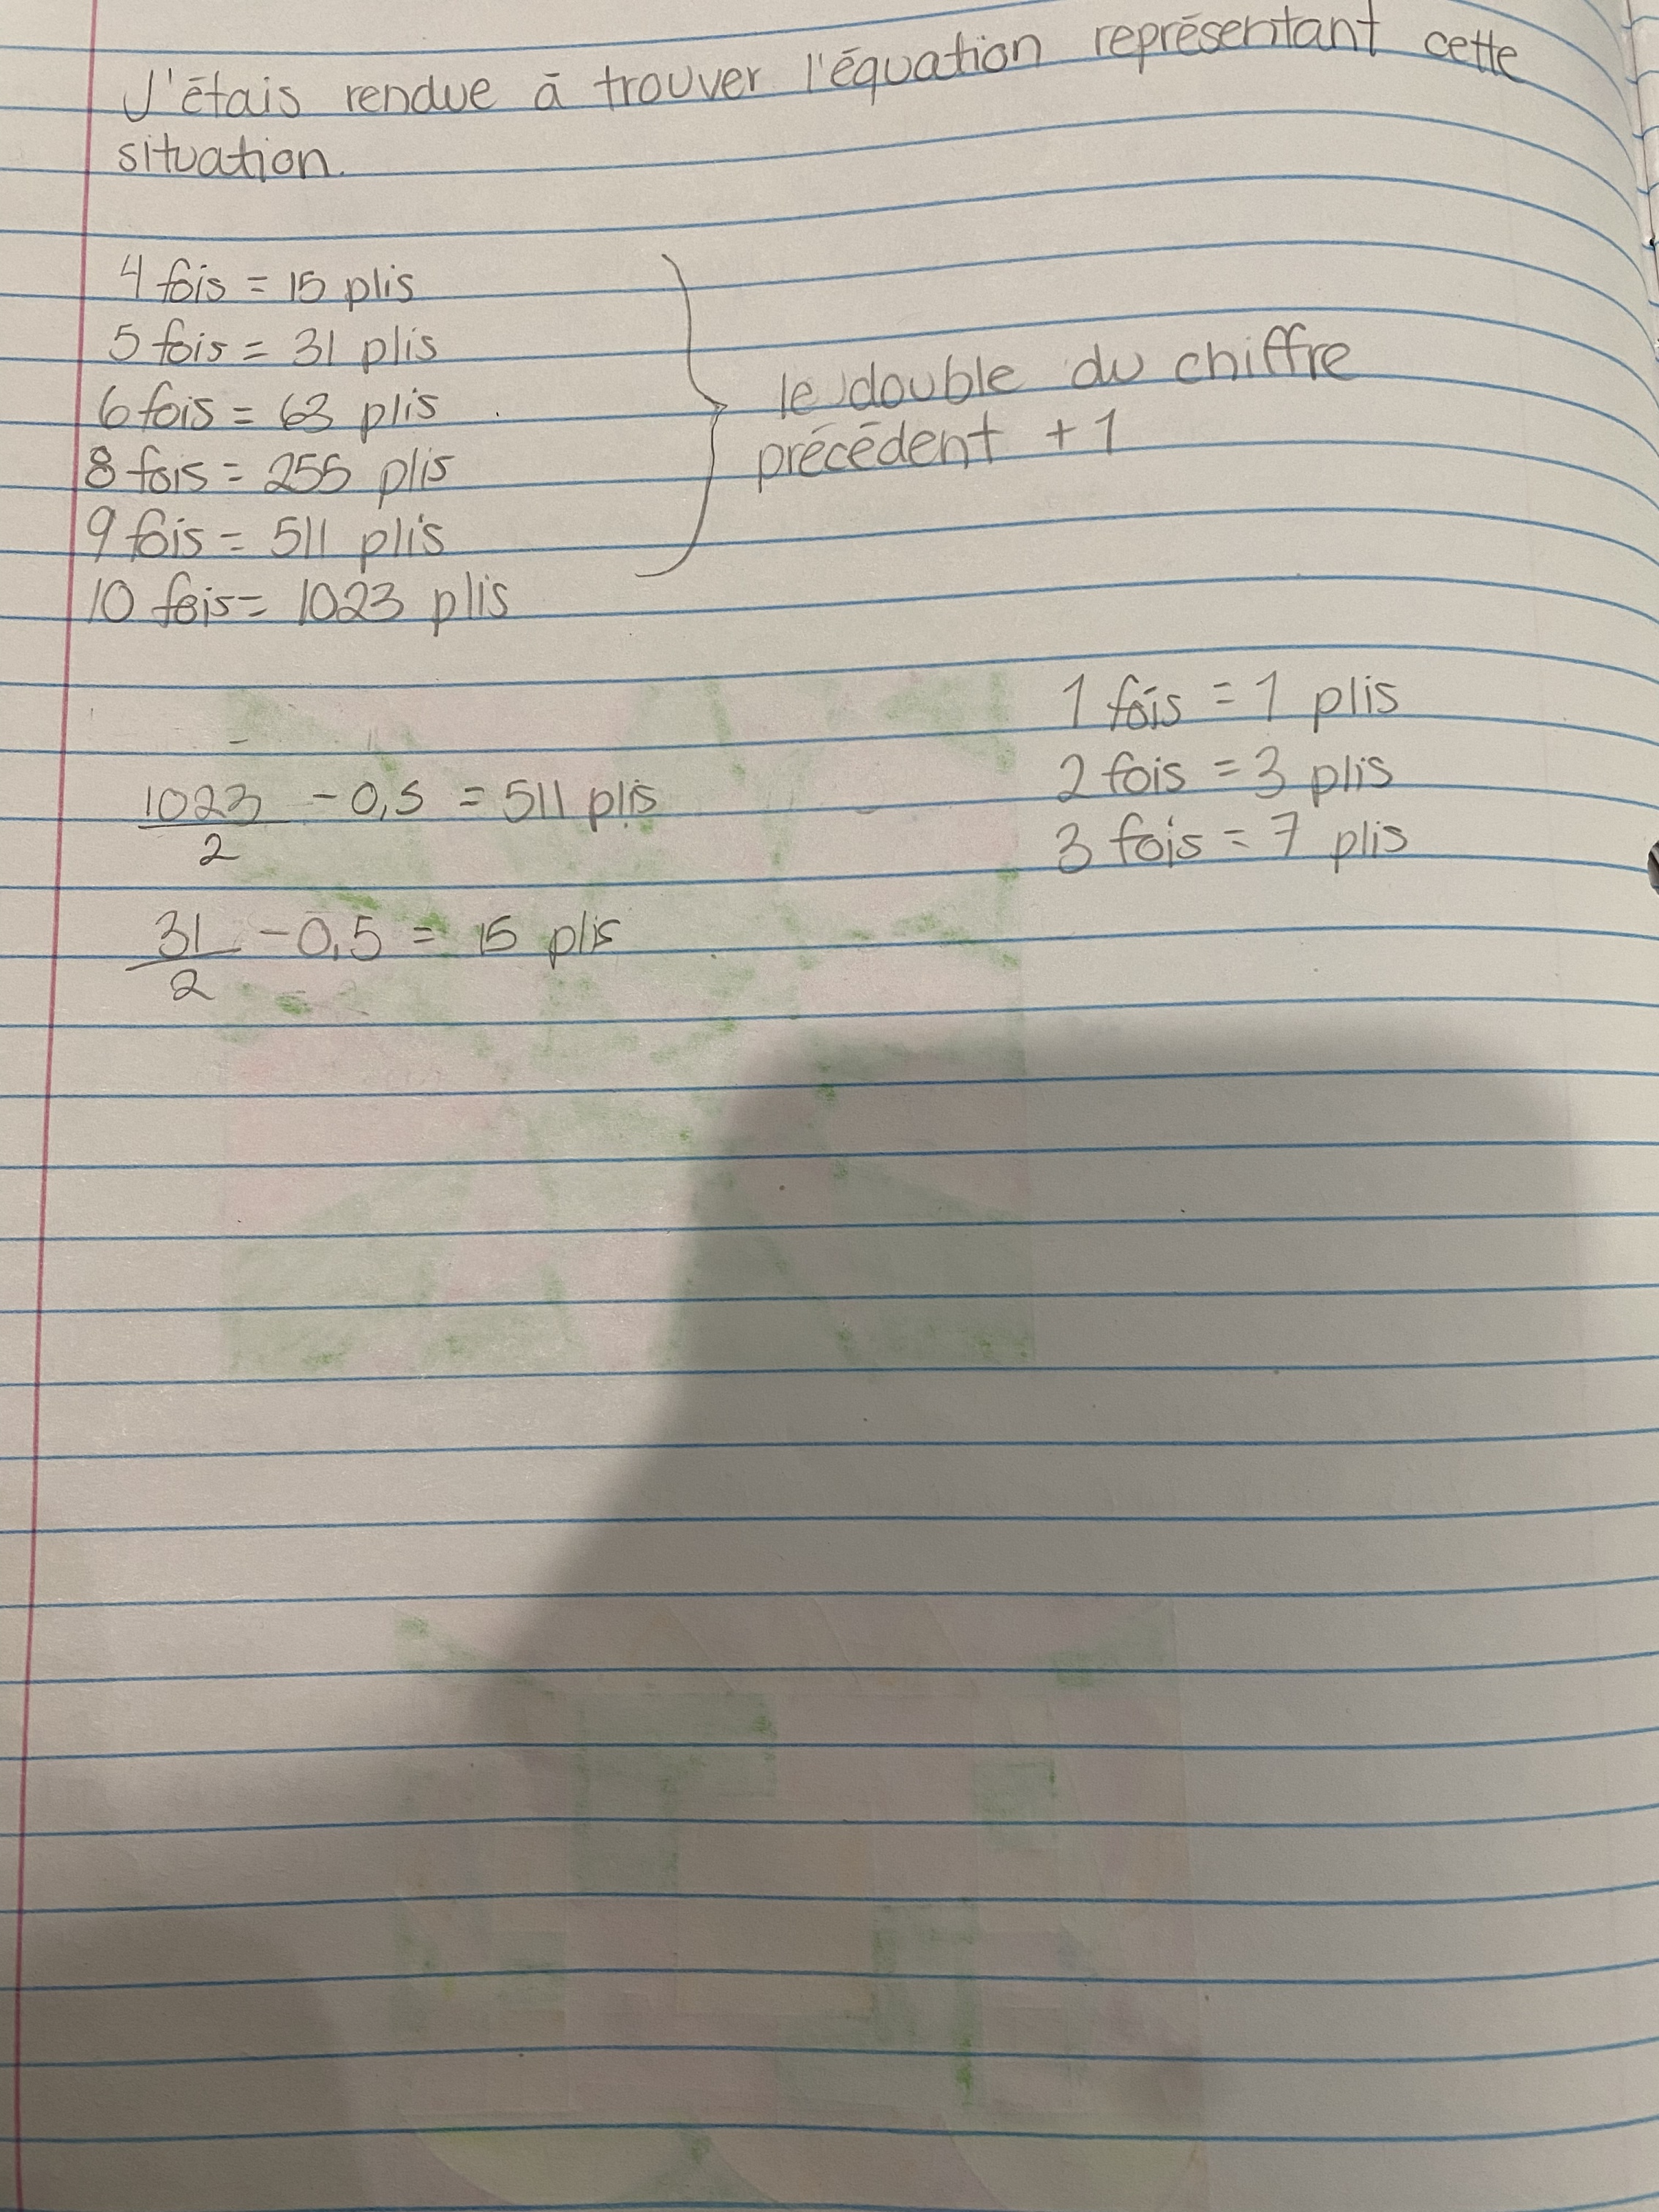 J'étais rendue à trouver l'équation représentant cette
situation.
4 fois = 15 plis
5 fois = 31 plis
6 fois = 63 plis
8 fois = 255 plis
9 fois = 511 plis
10 fois = 1023 plis
le double du chiffre
précédent + 1
1 fois = 1 plis
2 fois = 3 plis
3 fois = 7 plis
1023/2 - 0,5 = 511 plis
31/2 - 0,5 = 15 plis